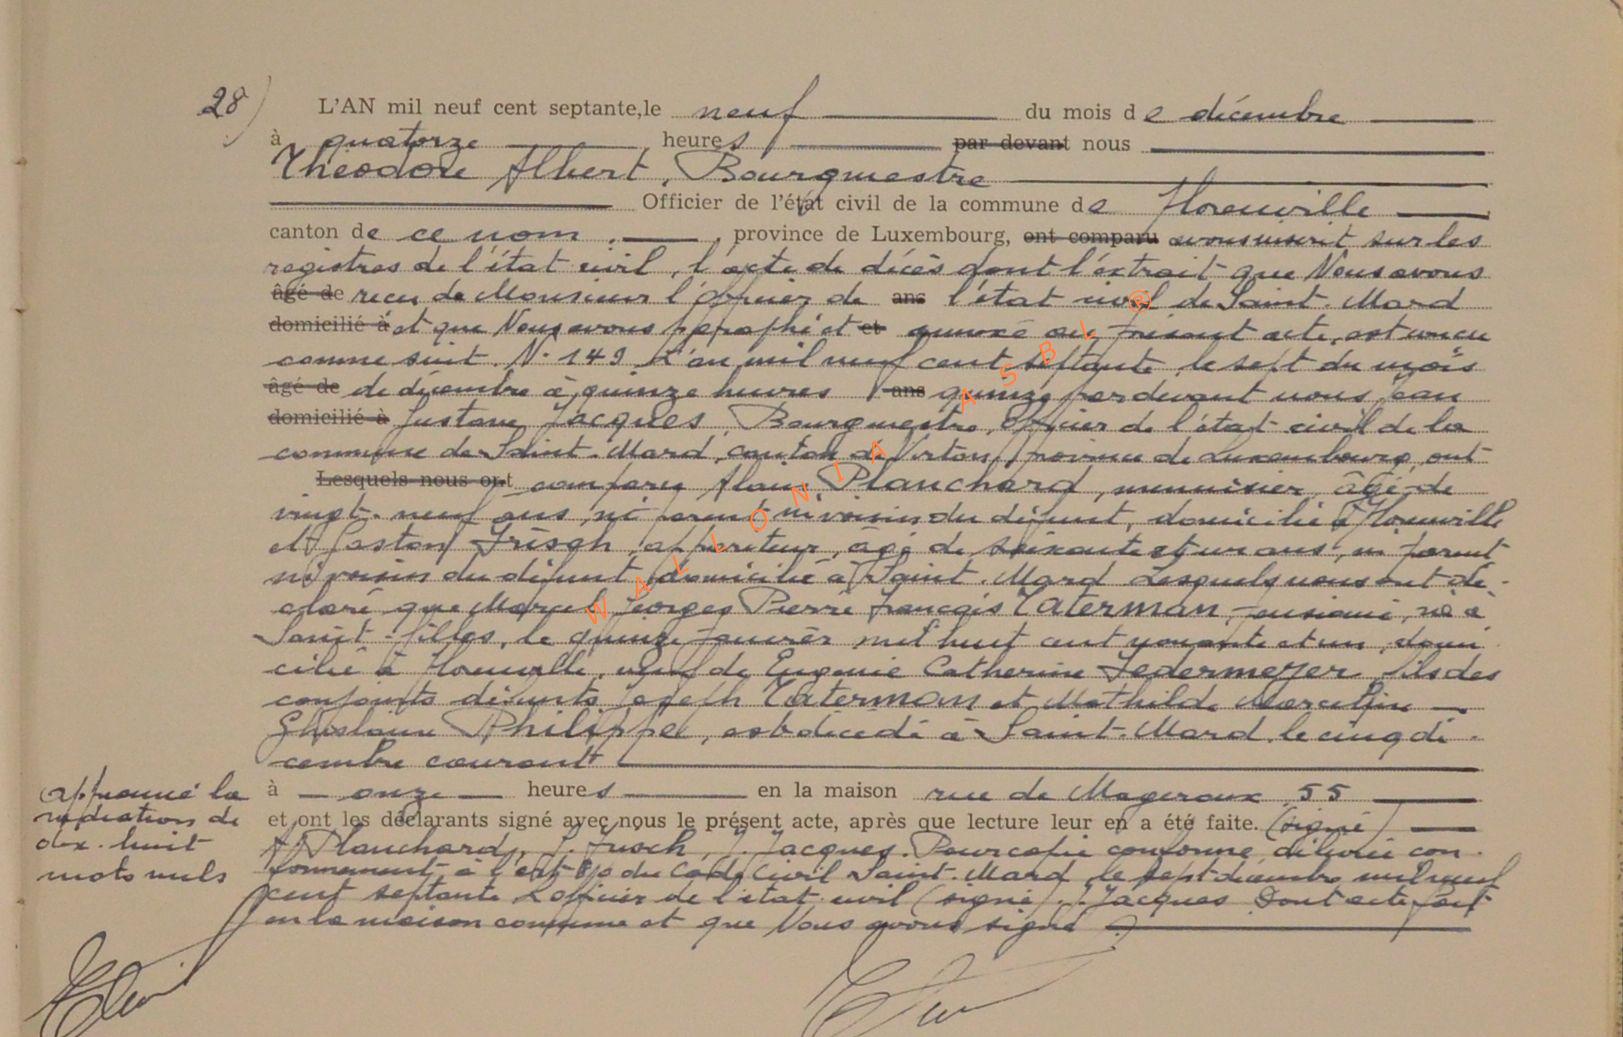 28)
L'AN mil neuf cent septante, le neuf du mois de décembre
à quatorze heures par devant nous
Théodore Albert, Bourgmestre
Officier de l'état civil de la commune de Florenville
canton de ce nom, province de Luxembourg, ont comparu avons inscrit sur les
registres de l'état civil, l'acte de décès dont l'extrait que Nous avons
âgé de recu de Monsieur l'officier de ans l'état civil de Saint-Mard
domicilié à et que Nous avons paraphé et et annexé au présent acte, est concu
comme suit. N° 149 L'an mil neuf cent septante le sept du mois
âgé de de décembre à quinze heures ans quinze par devant nous Jean
domicilié à Gustave Jacques, Bourgmestre, officier de l'état civil de la
commune de Saint-Mard, canton de Virton, province de Luxembourg, ont
Lesquels nous ont comparu Alain Planchard, menuisier, âgé de
vingt-neuf ans, ni parent ni voisin du défunt, domicilié à Florenville
et Gaston Frisch, appariteur, âgé de soixante et un ans, ni parent
ni voisin du défunt, domicilié à Saint-Mard Lesquels nous ont dé-
claré que Marcel Georges Pierre François Vaterman, pensionné, né à
Saint-Gilles, le quinze janvier mil huit cent nonante et un, domi-
cilié à Florenville, veuf de Eugenie Catherine Federmeyer, fils des
conjoints défunts Joseph Vaterman et Mathilde Marceline
Ghislaine Philippe, est décédé à Saint-Mard le cinq dé-
cembre courant
à onze heures en la maison rue de Mageroux 55
et ont les déclarants signé avec nous le présent acte, après que lecture leur en a été faite. (signé)
A. Planchard, G. Frisch, J. Jacques. Pour copie conforme, délivrée con-
formément à l'art 80 du Code Civil Saint-Mard, le sept décembre mil neuf
cent septante L'officier de l'état civil (signé) J. Jacques Dont acte fait
en la maison commune et que Nous avons signé
approuvé la
radiation de
dix-huit
mots nuls
WALLONIA ASBL ©